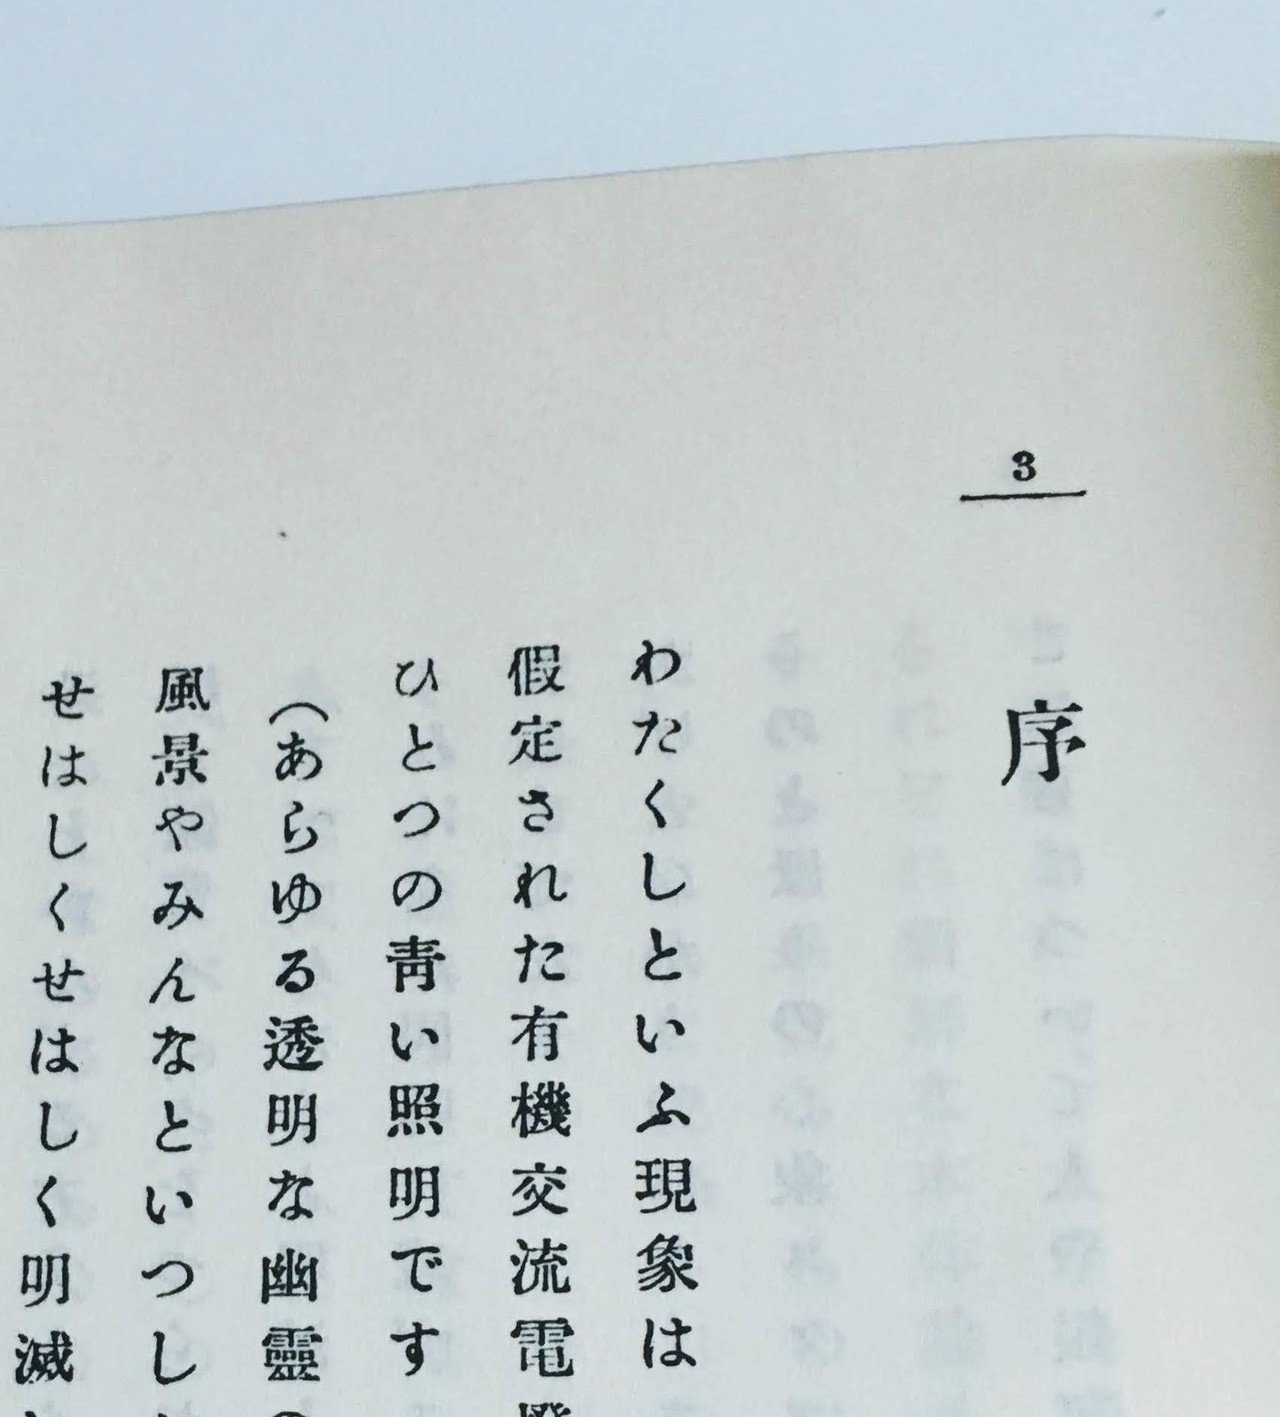 3
序
わたくしといふ現象は
假定された有機交流電
ひとつの靑い照明です
（あらゆる透明な幽靈の
風景やみんなといつしよ
せはしくせはしく明滅